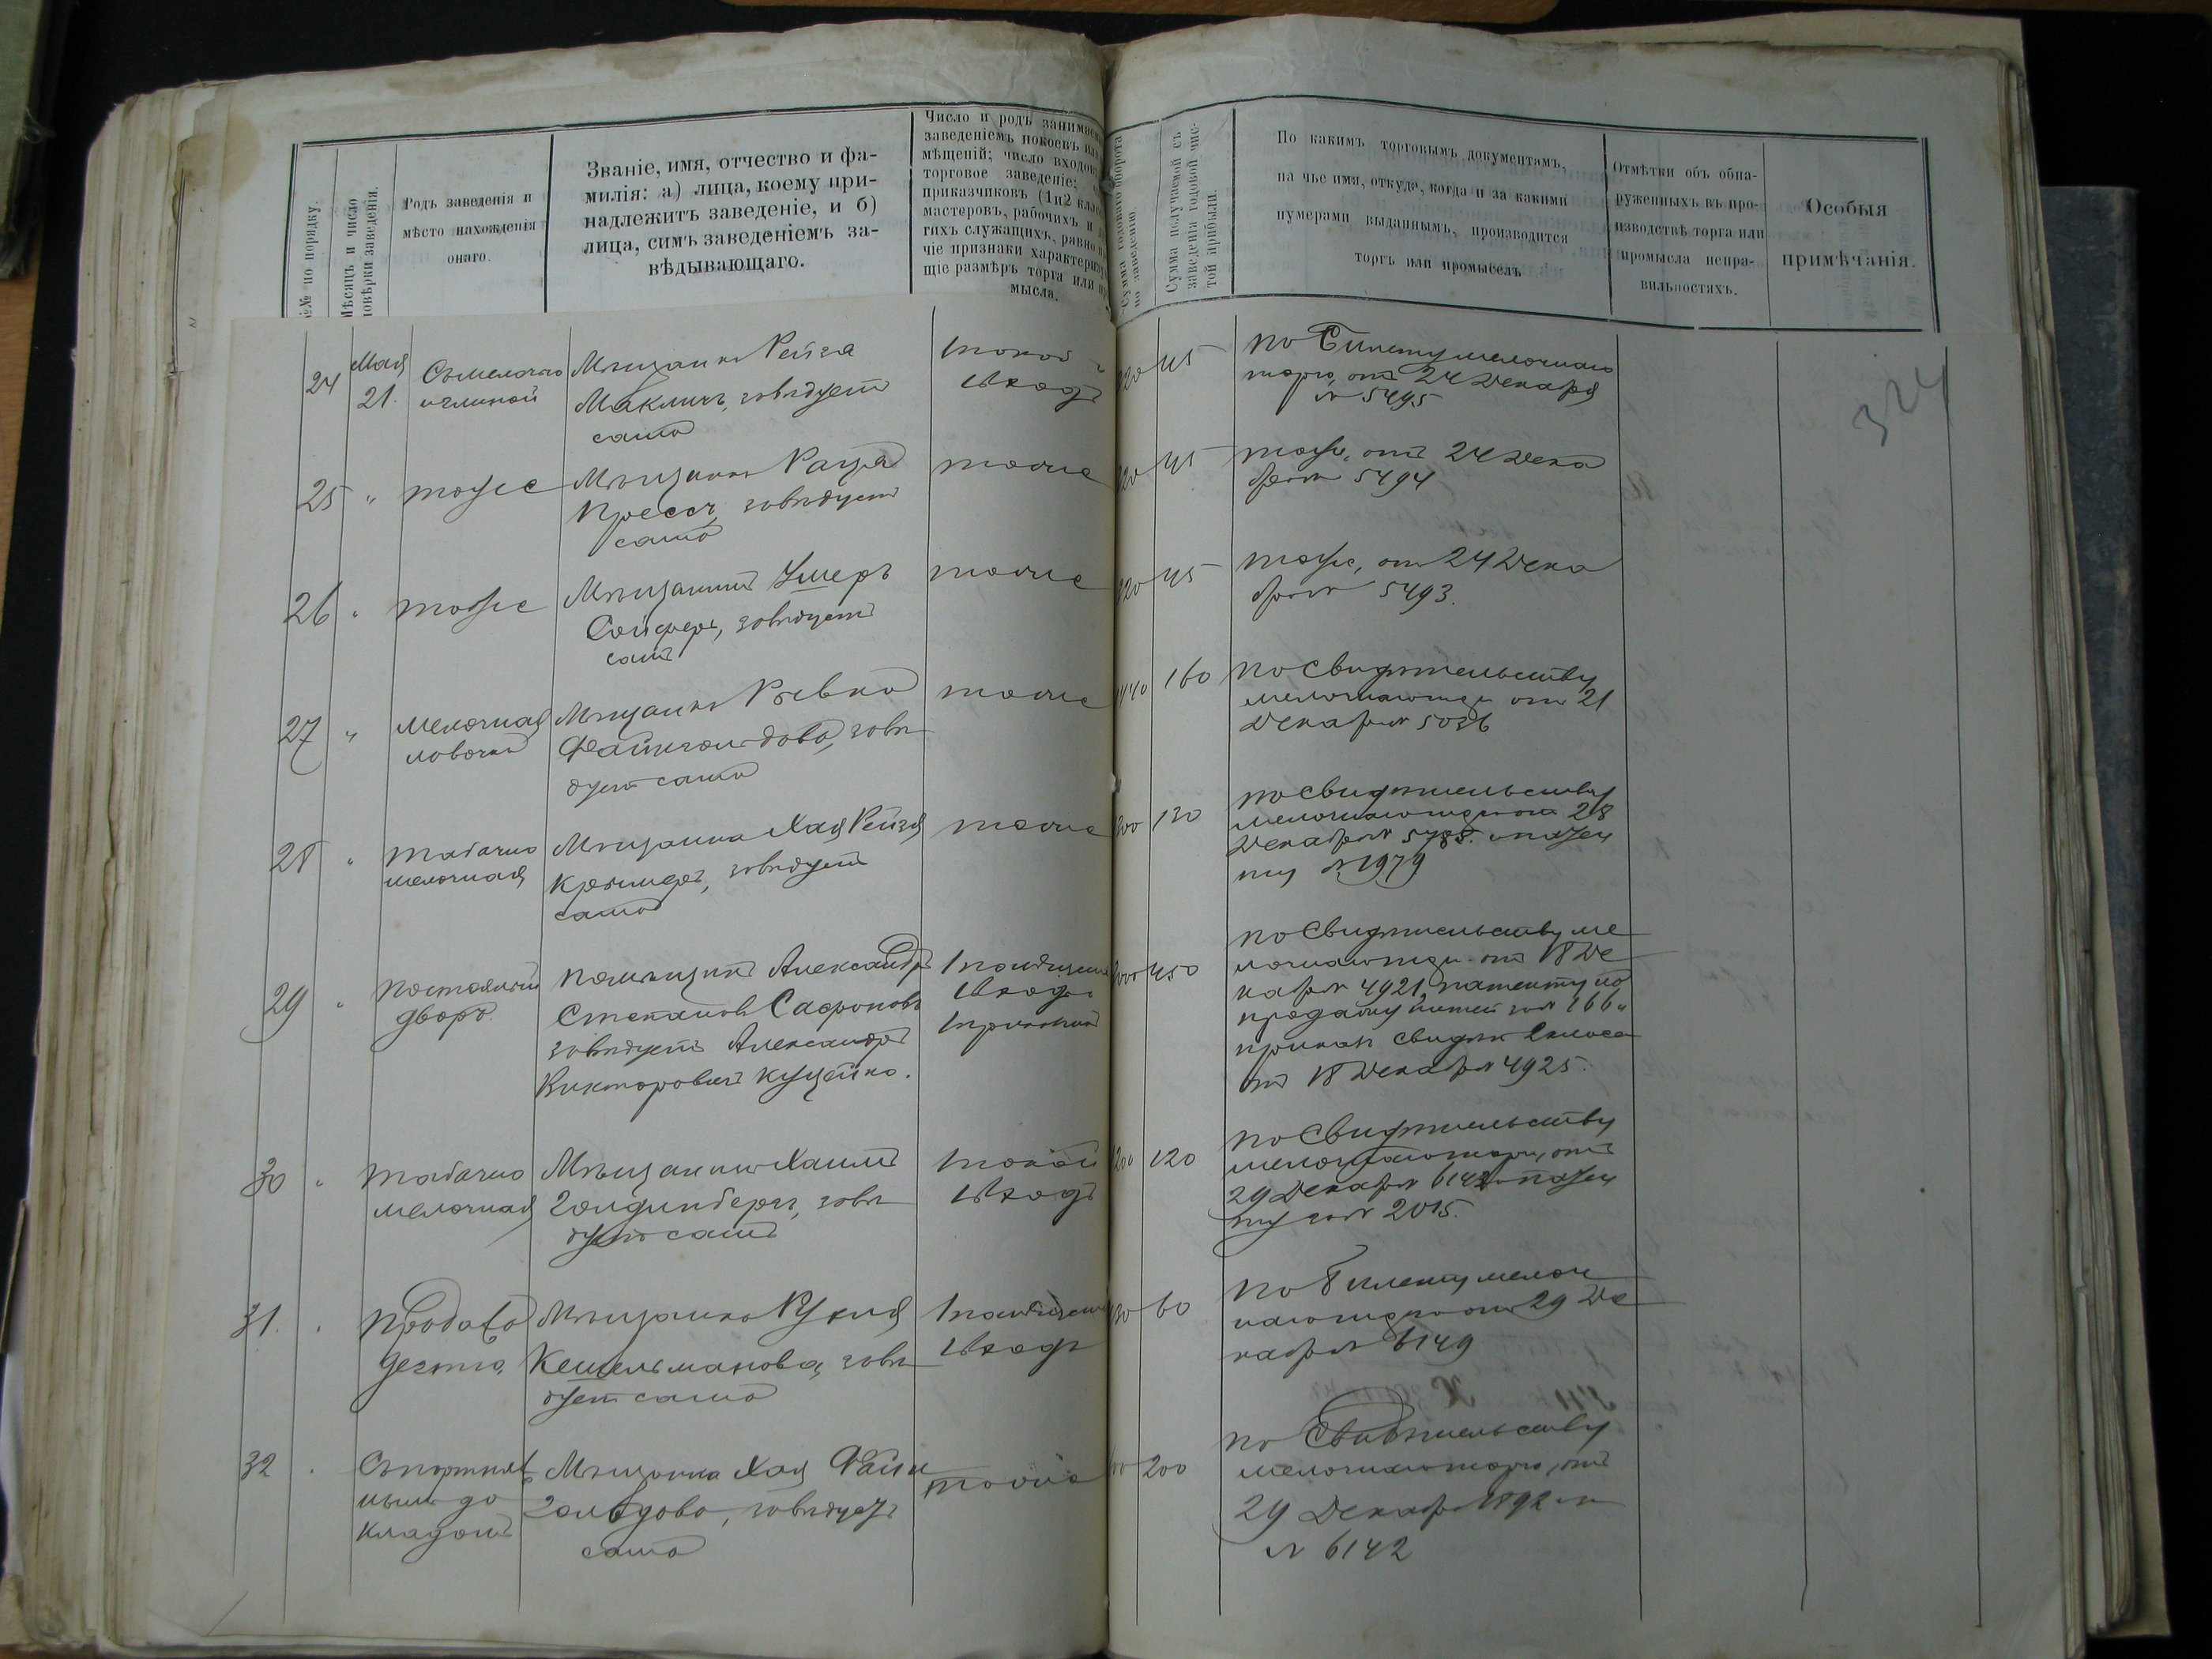 №№ по порядку.
Мѣсяцъ и число
повѣрки заведенія.
Родъ заведенія и
мѣсто нахожденія
онаго.
Званіе, имя, отчество и фа-
милія: а) лица, коему при-
надлежитъ заведеніе, и б)
лица, симъ заведеніемъ за-
вѣдывающаго.
Число и родъ занима
заведеніемъ покоевъ или
мѣщеній; число входов
торговое заведеніе;
приказчиковъ (1 и 2 клас
мастеровъ, рабочихъ и
гихъ служащихъ, равно
чіе признаки характериз
щіе размѣръ торга или
мысла.
Сумма годового оборота
по заведенію.
Сумма получаемой съ
заведенія годовой чис-
той прибыли.
По какимъ торговымъ документамъ,
на чье имя, откуда, когда и за какими
нумерами выданнымъ, производится
торгъ или промыселъ
Отмѣтки объ обна-
руженныхъ въ про-
изводствѣ торга или
промысла непра-
вильностяхъ.
Особыя
примѣчанія.
324
24 Мая
21.
Съ мелочью
и глиной
Мѣщанка Рейза
Маклинъ, завѣдуетъ
сама
1 покой
1 входъ
45
по Билету мелочнаго
торга, отъ 24 Декабря
№ 5495
25 " тоже
Мѣщанка
Прессъ, завѣдуетъ
сама
тоже
45
тоже, отъ 24 Дека
бря № 5494
26 " тоже
Мѣщанинъ Ушеръ
Сойферъ, завѣдуетъ
самъ
тоже
45
тоже, от 24 Дека
бря № 5493.
27 " мелочная
лавочка
Мѣщанка Ривка
Файнгольдова, завѣ
дует сама
тоже
160
по Свидѣтельству
мелочнаго торга от 21
Декабря № 5036
28 " табачно
мелочная
Мѣщанка Хая Рейзя
Кремеръ, завѣдуетъ
сама
тоже
130
по Свидѣтельству
мелочнаго торга от 28
Декабря № 5785. и патен
ту № 1979
29 " постоялый
дворъ.
помѣщикъ Александръ
Степановъ Сафоновъ
завѣдуетъ Александръ
Викторовичъ
1 помѣщеніе
1 входъ
1 прикащикъ
450
по Свидѣтельству ме
лочнаго торга отъ 18 Де
кабря № 4921, патенту на
продажу питей за № 166 и
приказ. Свидѣт. 2 класса
отъ 18 Декабря № 4925.
30 " табачно
мелочная
Мѣщанинъ Хаимъ
Голдинберг, завѣ
дуетъ самъ
1 покой
1 входъ
120
по Свидѣтельству
мелочнаго торга, отъ
29 Декабря № 6148 и патен
ту за № 2015.
31. " Продажа
дегтю,
Мѣщанка Рухля
Кешельманова, завѣ
дует сама
1 помѣщеніе
1 входъ
60
По Билету мелоч
наго торга от 29 Де
кабря № 6149
32 "
Мѣщанка Хая Файн
гольдова, завѣдуетъ
сама
тоже
200
по Свидѣтельству
мелочнаго торга, отъ
29 Декабря 1892
№ 6142